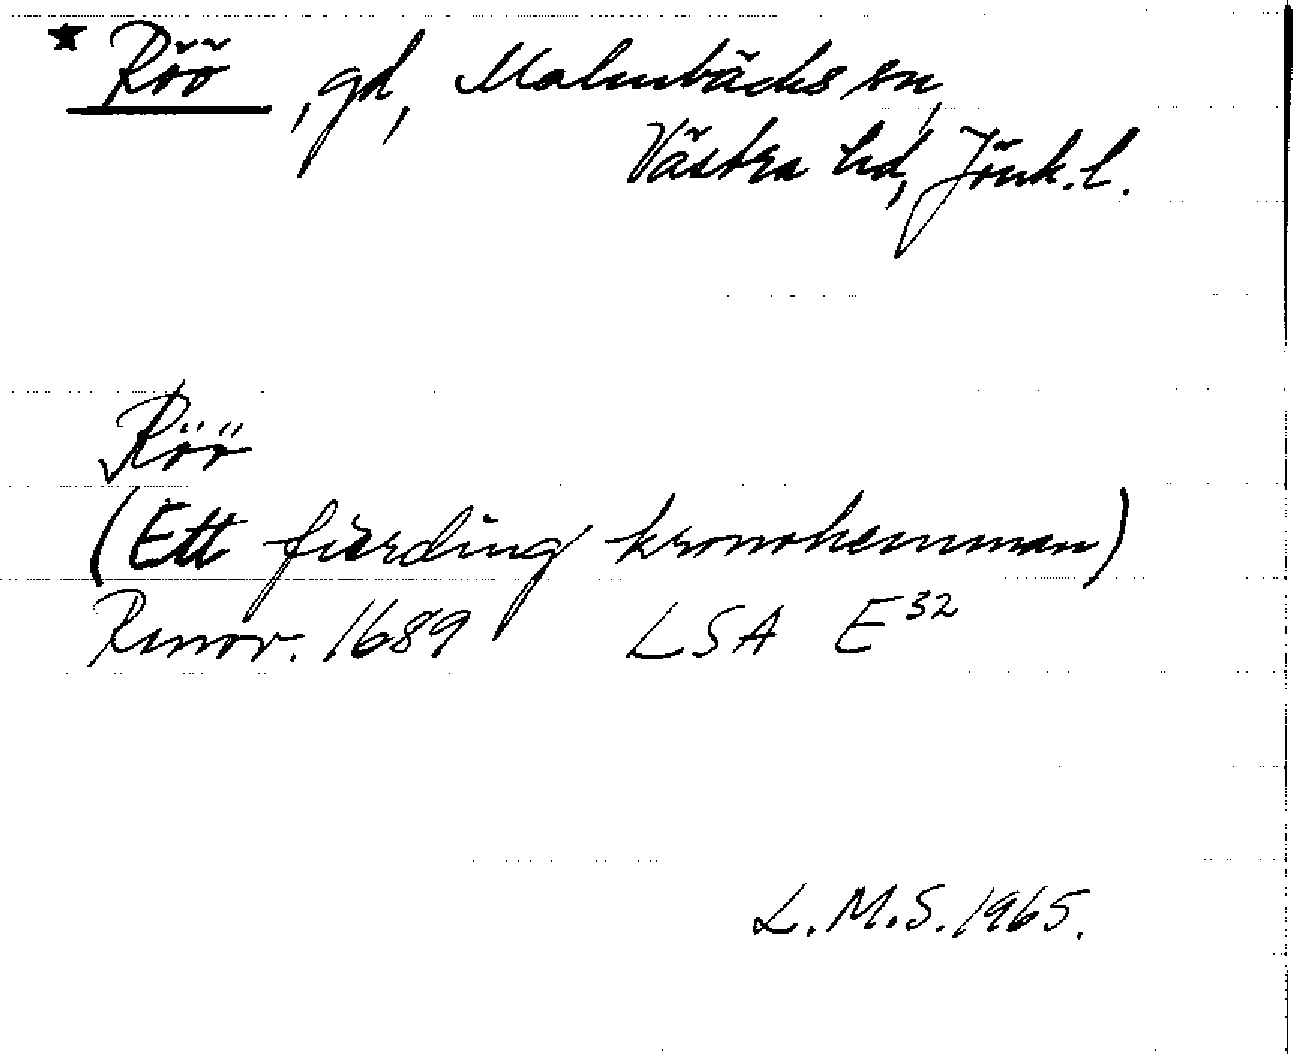 * Röö, gd, Malmbäcks sn,
Västra hd, Jönk. l.
Röö
(Ett fierding kronohemman)
Renov. 1689 LSA E³²
L.M.S. 1965.